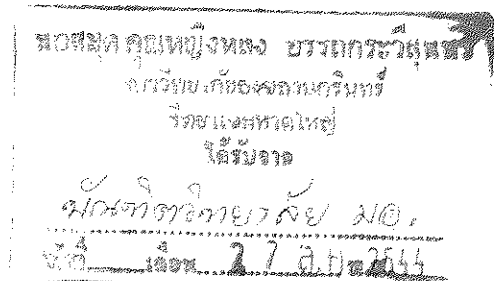 หอสมุด คุณหญิงหลง อรรถกระวีสุนทร
มหาวิทยาลัยสงขลานครินทร์
วิทยาเขตหาดใหญ่
ได้รับจาก
บัณฑิตวิทยาลัย มอ.
วันที่ เดือน 27 มิ.ย. 2544